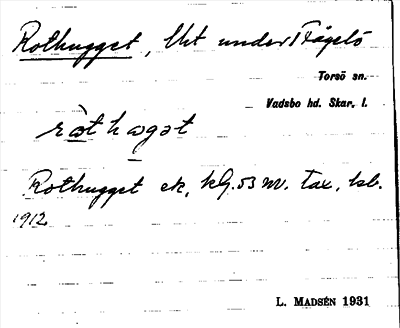 Rothugget, Utt under 1 Fågelö
Torsö sn.
Vadsbo hd. Skar. l.
ròt hagat
Rothugget ek, kG. 53 nv. Tax, hsb.
1912
L. MADSÉN 1931